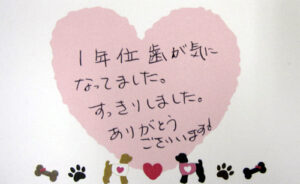 1年位歯が気に
なってました。
すっきりしました。
ありがとう
ございいます!